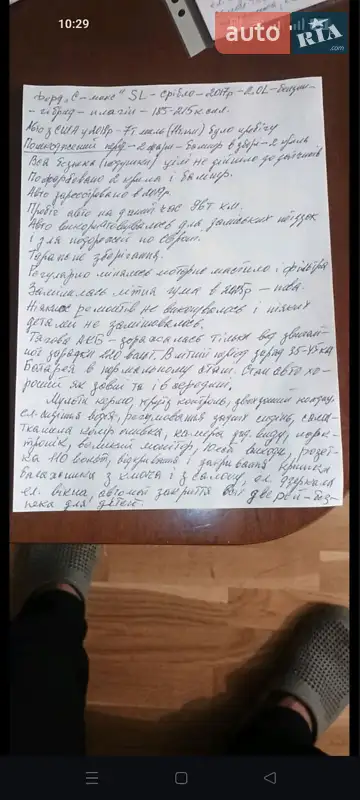 10:29
auto RIA.com
Форд „С-макс" SEL - срібло - 2017р - 2.0L - бензин-
- гібрид - плагін - 185-215 к сил.
Авто з США у 2018р - 7т миль (Миль) було пробігу
Пошкоджений перед - 2 фари - бампер в зборі - 2 крила
Вся безпека (подушки) цілі не дійшло до
Пофарбовано 2 крила і бампер.
Авто зареєстровано в 2019р.
Пробіг авто на даний час 98т км.
Авто використовувалось для заміських поїздок
і для подорожей по Європі.
Гаражне зберігання.
Регулярно мінялось моторне мастило і фільтра
Замінялась літня гума в 2025р - нова.
Ніяких ремонтів не виконувалось і ніяких
деталей не замінювалось.
Тягова АКБ - заряжалась тільки від звичай-
ної зарядки 220 вольт. В літній період заряд 35-45 км
Батарея в нормальному стані. Стан авто хо-
роший як зовні та і в середині.
Мульти кермо, круїз контроль, двозонний клімат,
ел. сидіння водія, регулювання задніх сидінь, сало-
н тканина комір оливка, камера зад. виду, парк-
тронік, великий монітор, Юсб виходи, розет-
ка 110 вольт, відкривання і закривання кришки
багажника з ключа і з салону, ел. дзеркала
ел. вікна, автомат закриття всіх дверей - без-
пека для дітей.